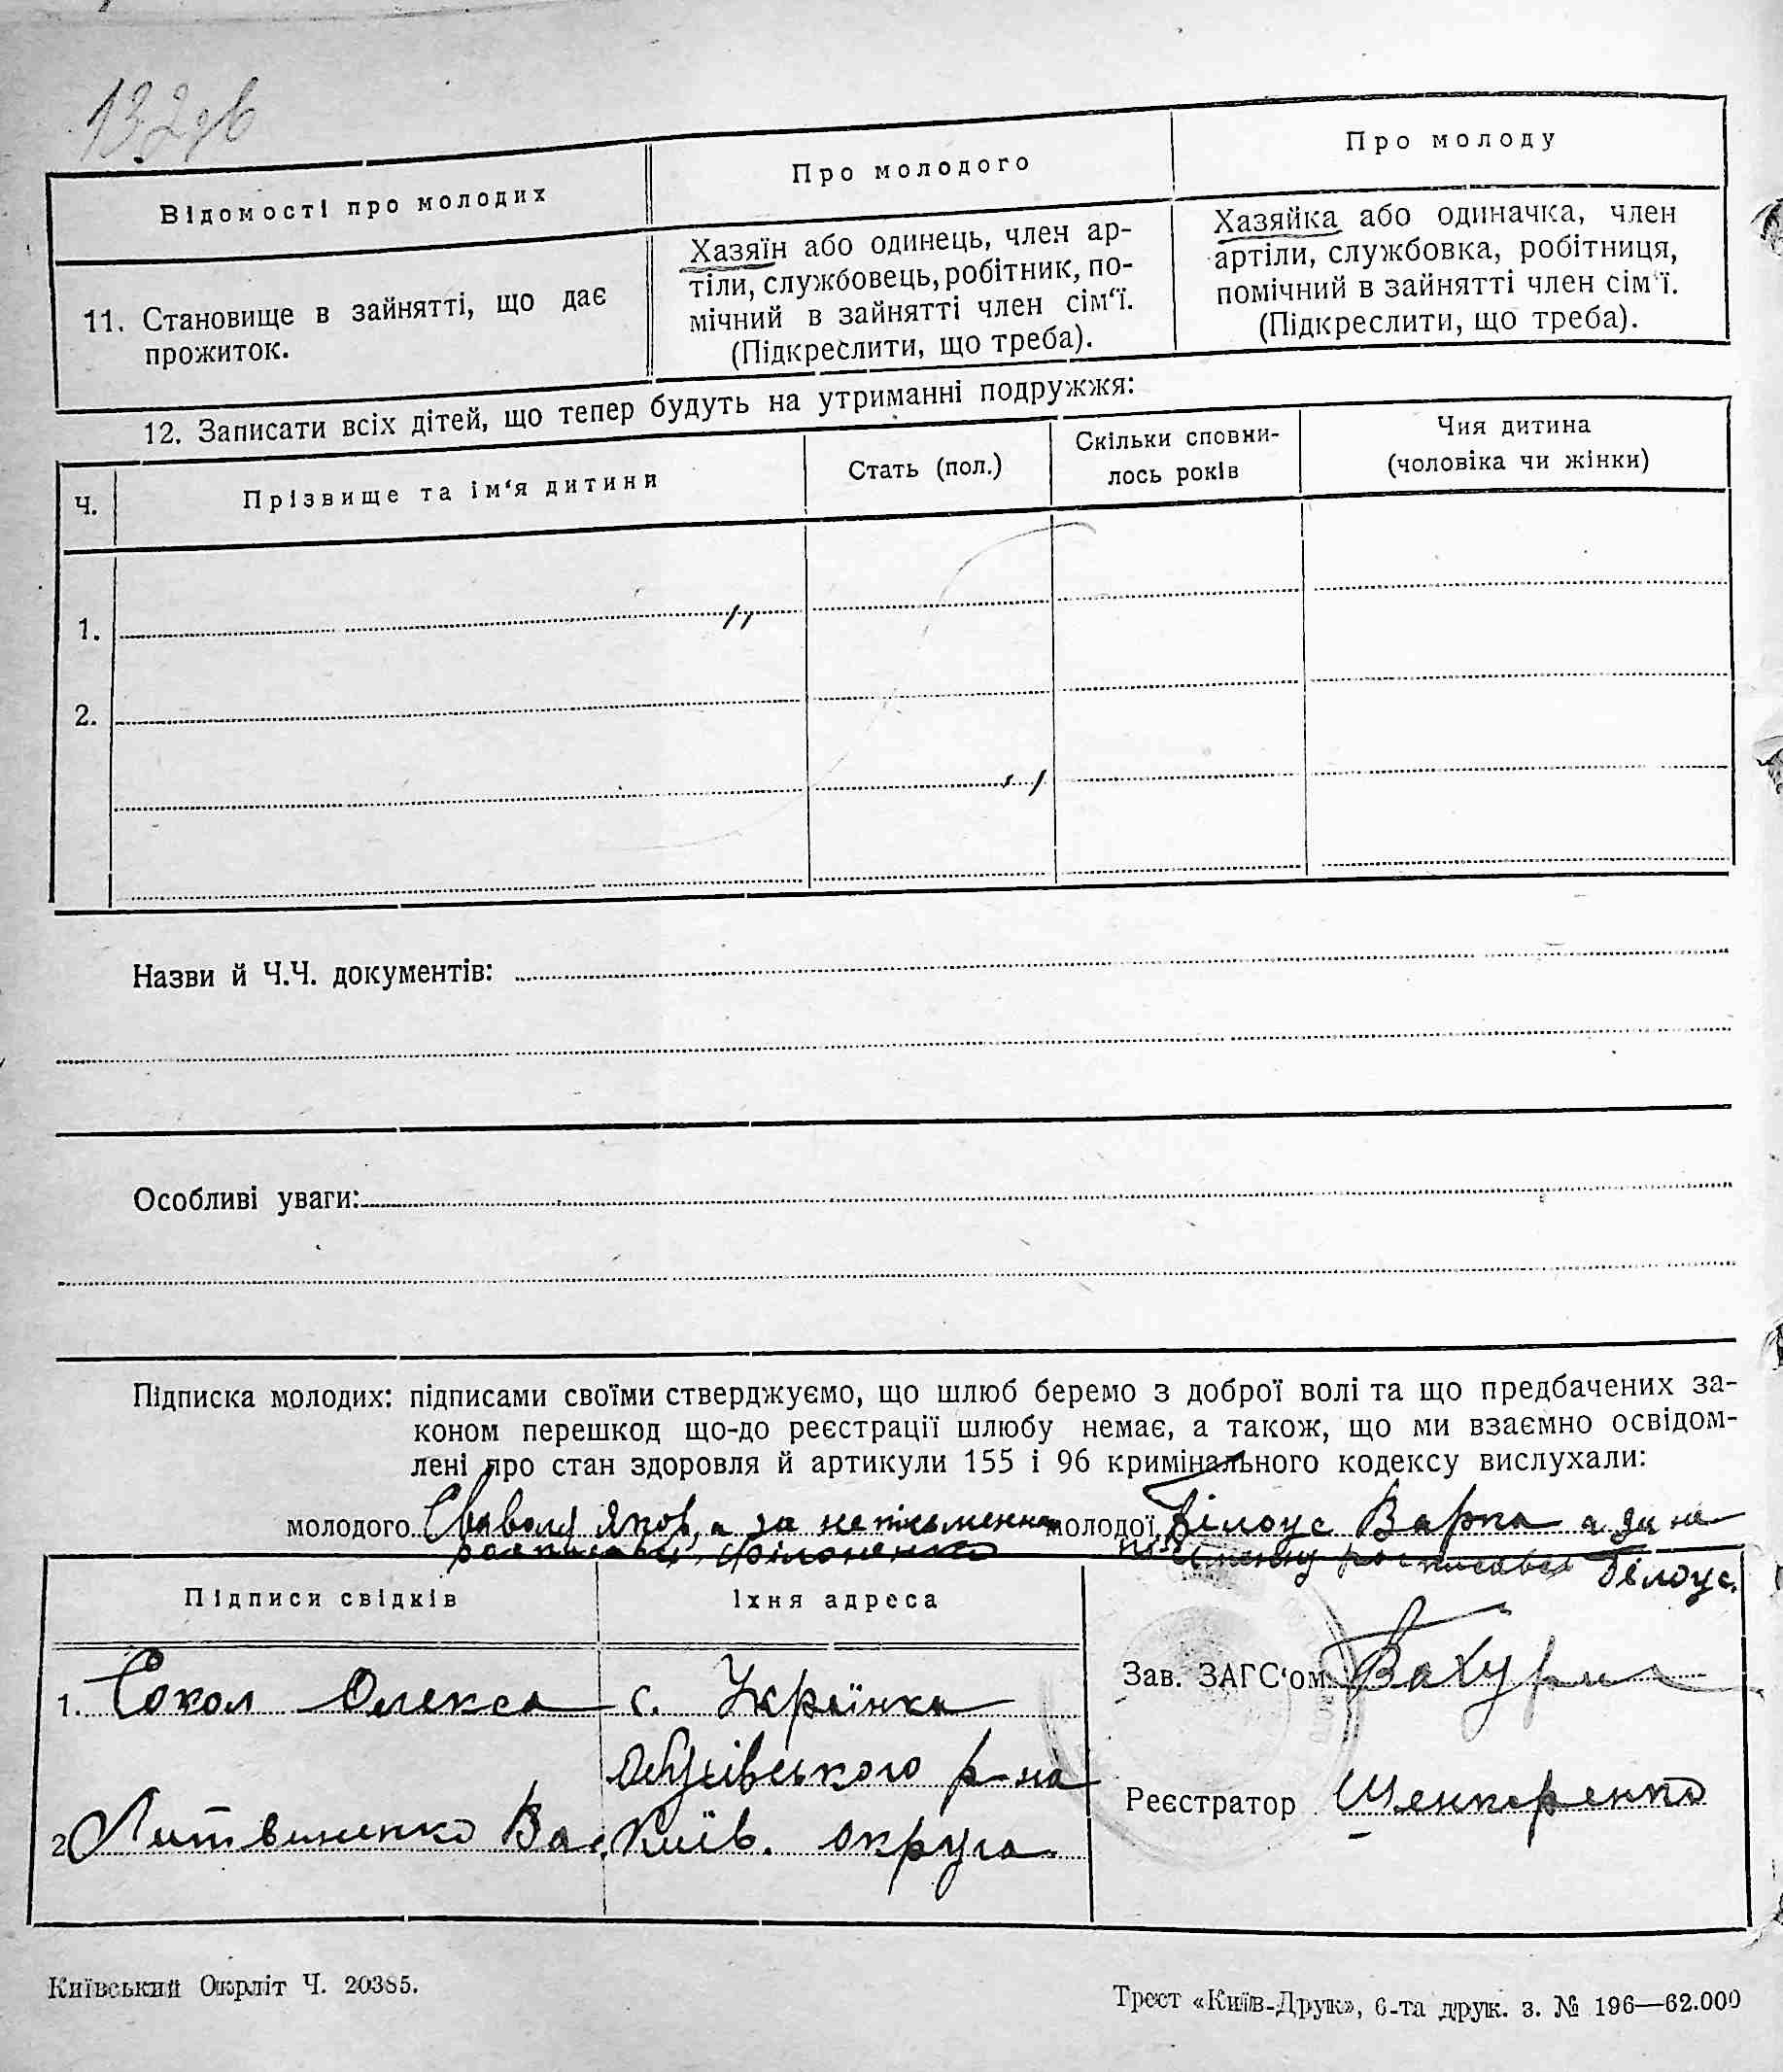 132зв
Відомості про молодих
Про молодого
Про молоду
11. Становище в зайнятті, що дає
прожиток.
Хазяїн або одинець, член ар-
тіли, службовець, робітник, по-
мічний в зайнятті член сім‘ї.
(Підкреслити, що треба).
Хазяйка або одиначка, член
артіли, службовка, робітниця,
помічний в зайнятті член сім‘ї.
(Підкреслити, що треба).
12. Записати всіх дітей, що тепер будуть на утриманні подружжя:
Ч.
Прізвище та ім‘я дитини
Стать (пол.)
Скільки сповни-
лось років
Чия дитина
(чоловіка чи жінки)
1.
2.
Назви й Ч.Ч. документів:
Особливі уваги:
Підписка молодих: підписами своїми стверджуємо, що шлюб беремо з доброї волі та що предбачених за-
коном перешкод що-до реєстрації шлюбу немає, а також, що ми взаємно освідом-
лені про стан здоровля й артикули 155 і 96 кримінального кодексу вислухали:
молодого Сваволя Яков, а за непісьменна
росписавсь Філоненко
молодої Білоус Варка а за не
пісьменну росписавсь Білоус.
Підписи свідків
Їхня адреса
1. Сокол Олекса
с. Українка
Обухівського р-на
2 Литвиненко Вас.
Київ. округа.
Зав. ЗАГС‘ом
Реєстратор
Київський Окрліт Ч. 20385.
Трест «Київ-Друк», 6-та друк. з. № 196—62.000